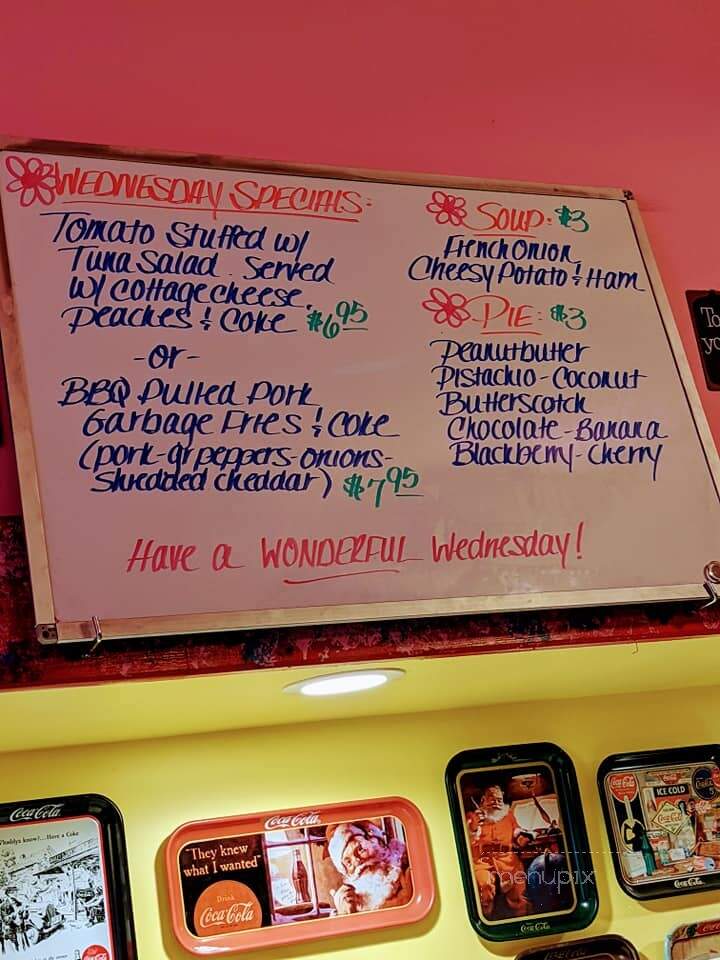 WEDNESDAY SPECIALS:
Tomato Stuffed w/
Tuna Salad. Served
w/ cottage cheese,
Peaches & Coke $6.95
-or-
BBQ Pulled Pork
Garbage Fries & Coke
(pork-gr peppers-onions-
Shredded cheddar) $7.95
SOUP: $3
French Onion
Cheesy Potato & Ham
PIE: $3
Peanutbutter
Pistachio-Coconut
Butterscotch
Chocolate-Banana
Blackberry-Cherry
Have a WONDERFUL Wednesday!
To
yo
Coca-Cola
Have a Coke
Coca-Cola
"They knew
what I wanted"
Drink
Coca-Cola
Coca-Cola
ICE COLD
Coca-Cola
5
Coca-Cola
menupix